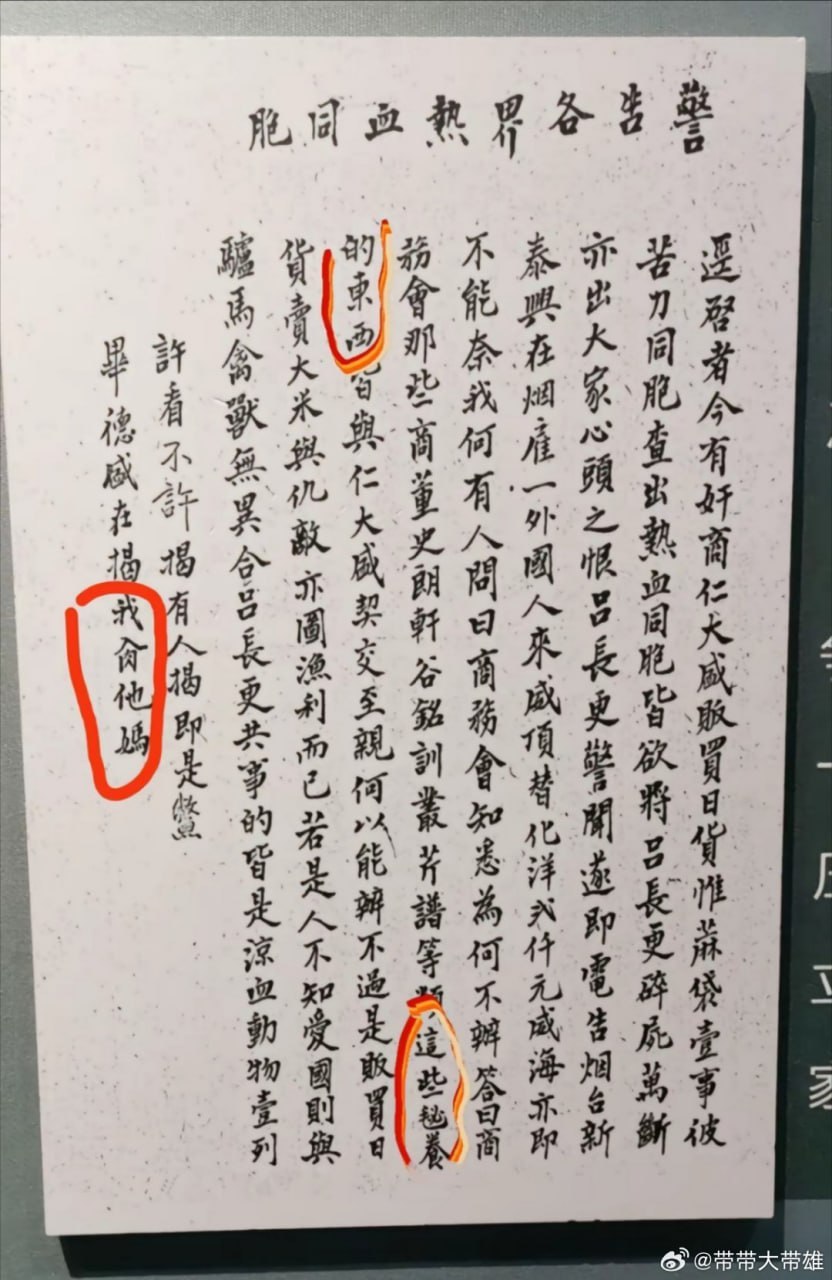 警告各界熱血同胞
逕啓者今有奸商仁大盛販買日貨惟蔴袋壹事被
苦力同胞查出熱血同胞皆欲將呂長更碎屍萬斷
亦出大家心頭之恨呂長更警聞遂即電告烟台新
泰興在烟雇一外國人來威頂替化洋弍仟元威海亦即
不能奈我何有人問曰商務會知悉為何不辦答曰商
務會那些商董史朗軒谷銘訓叢芹譜等類這些毬養
的東西皆與仁大盛契交至親何以能辦不過是販買日
貨賣大米與仇敵亦圖漁利而已若是人不知愛國則與
驢馬禽獸無異合呂長更共事的皆是涼血動物壹列
許看不許揭有人揭即是鱉
畢德盛在揭我肏他媽
@带带大带雄